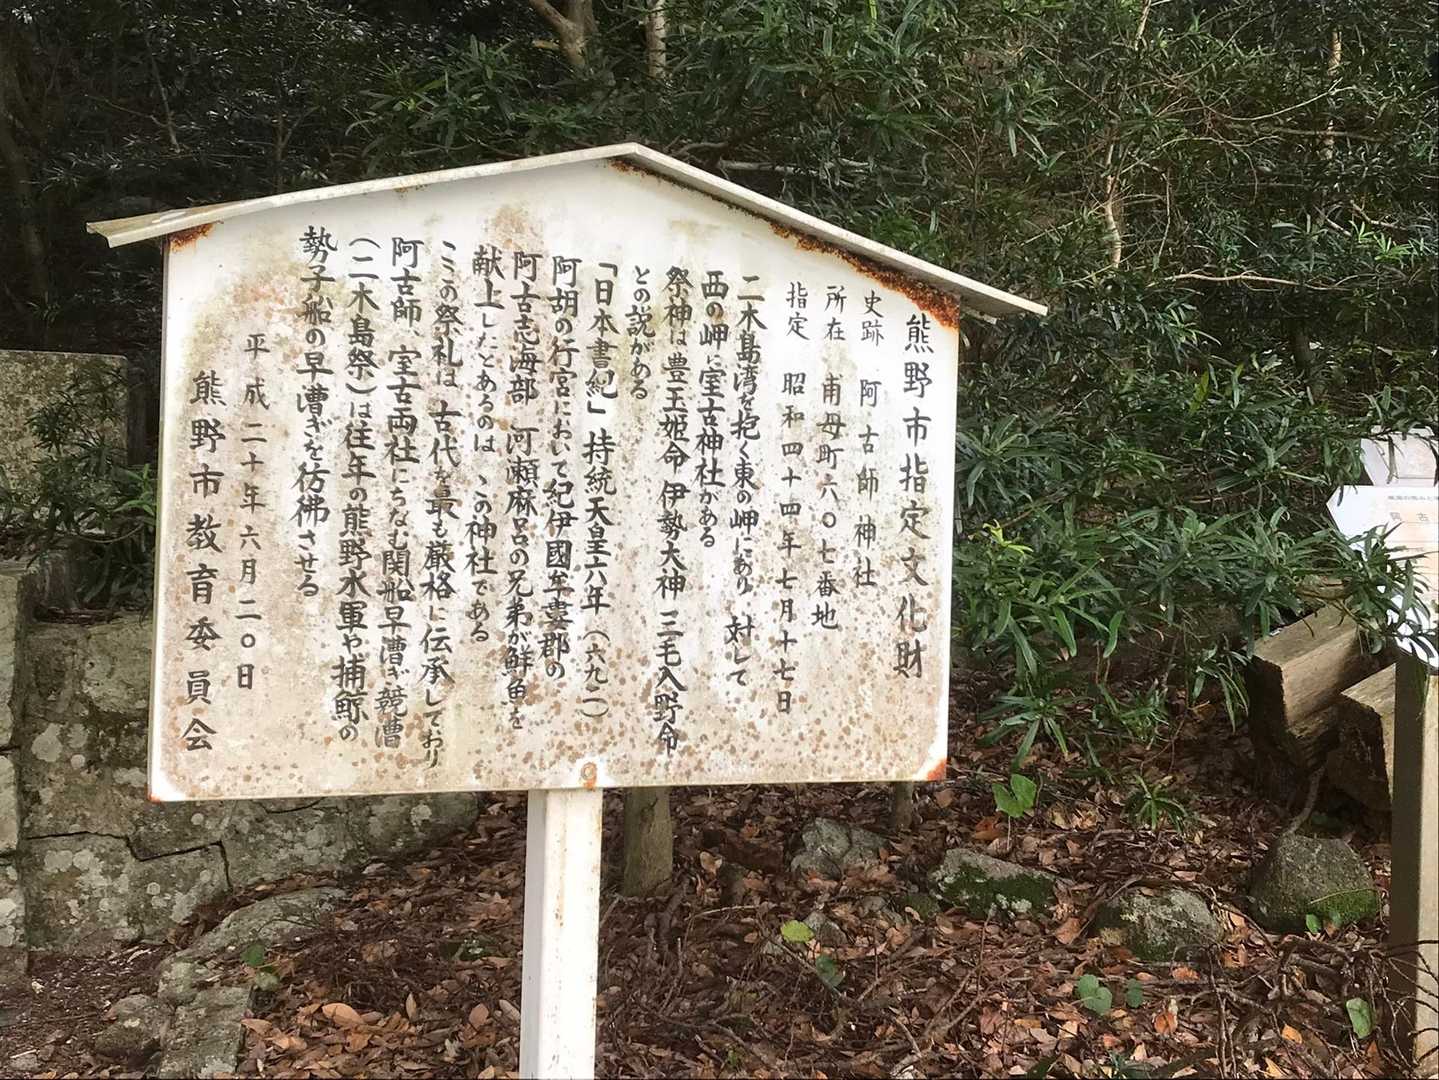 熊野市指定文化財
史跡 阿古師神社
所在 甫母町六〇七番地
指定 昭和四十四年七月十七日
二木島湾を抱く東の岬にあり 対して
西の岬に室古神社がある
祭神は豊玉姫命 伊勢大神 三毛入野命
との説がある
「日本書紀」持統天皇六年(六九二)
阿胡の行宮において紀伊國牟婁郡の
阿古志海部 河瀬麻呂の兄弟が鮮魚を
献上したとあるのは この神社である
ここの祭礼は 古代を最も厳格に伝承しており
阿古師、室古両社にちなむ関船早漕ぎ競漕
(二木島祭)は往年の熊野水軍や捕鯨の
勢子船の早漕ぎを彷彿させる
平成二十年六月二〇日
熊野市教育委員会